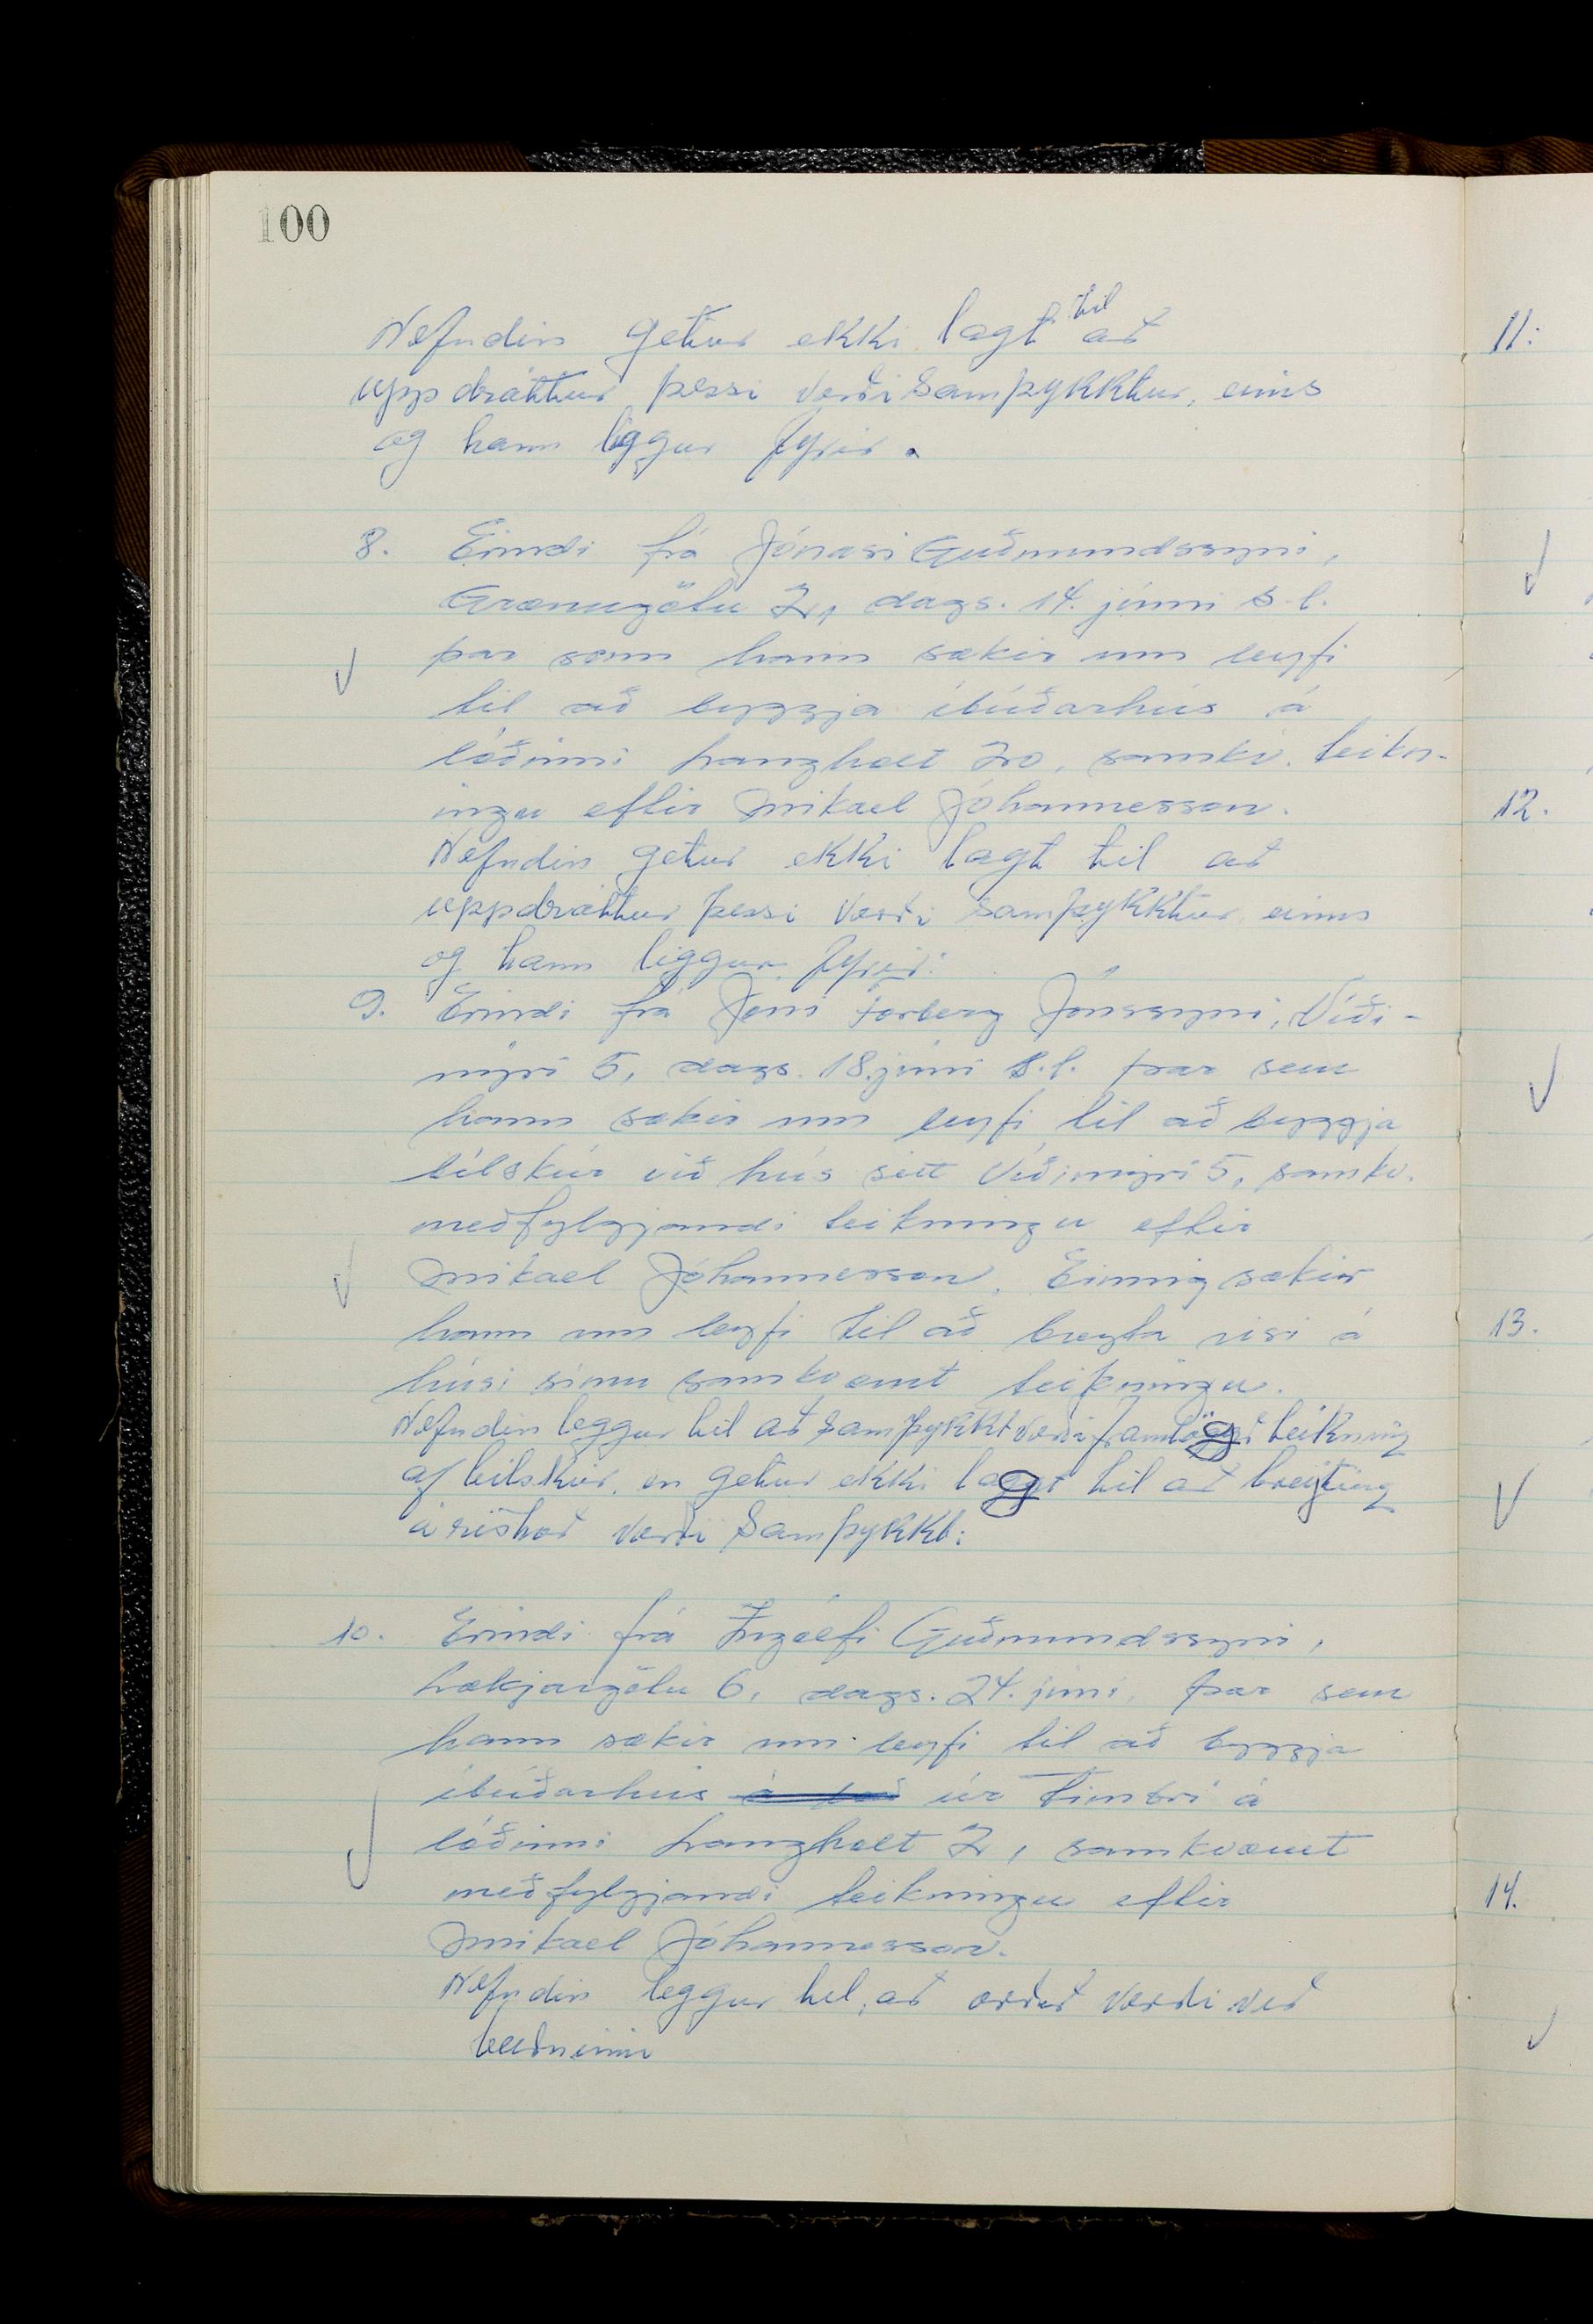 100
Nefndin getur ekki lagt til að
uppdráttur þessi verði samþykktur, eins
og hann liggur fyrir.
8. Erindi frá Jónasi Guðmundssyni,
Grænugötu 2, dags. 14. júní s.l.
þar sem hann sækir um leyfi
til að byggja íbúðarhús á
lóðinni Langholt 20, samkv. teikn-
ingu eftir Mikael Jóhannesson.
Nefndin getur ekki lagt til að
uppdráttur þessi verði samþykktur eins
og hann liggur fyrir.
9. Erindi frá Jóni Forberg Jónssyni, Víði-
mýri 5, dags. 18. júní s.l. þar sem
hann sækir um leyfi til að byggja
bílskúr við hús sitt Víðimýri 5, samkv.
meðfylgjandi teikningu eftir
Mikael Jóhannesson. Einnig sækir
hann um leyfi til að breyta risi á
húsi sínu samkvæmt teikningu.
Nefndin leggur til að samþykkt verði framlögð teikning
af bílskúr, en getur ekki lagt til að breyting
á rishæð verði samþykkt.
10. Erindi frá Ingólfi Guðmundssyni,
Lækjargötu 6, dags. 24. júní, þar sem
hann sækir um leyfi til að byggja
íbúðarhús úr timbri á
lóðinni Langholt 2, samkvæmt
meðfylgjandi teikningu eftir
Mikael Jóhannesson.
Nefndin leggur til, að orðið verði við
beiðninni
11.
12.
13.
14.